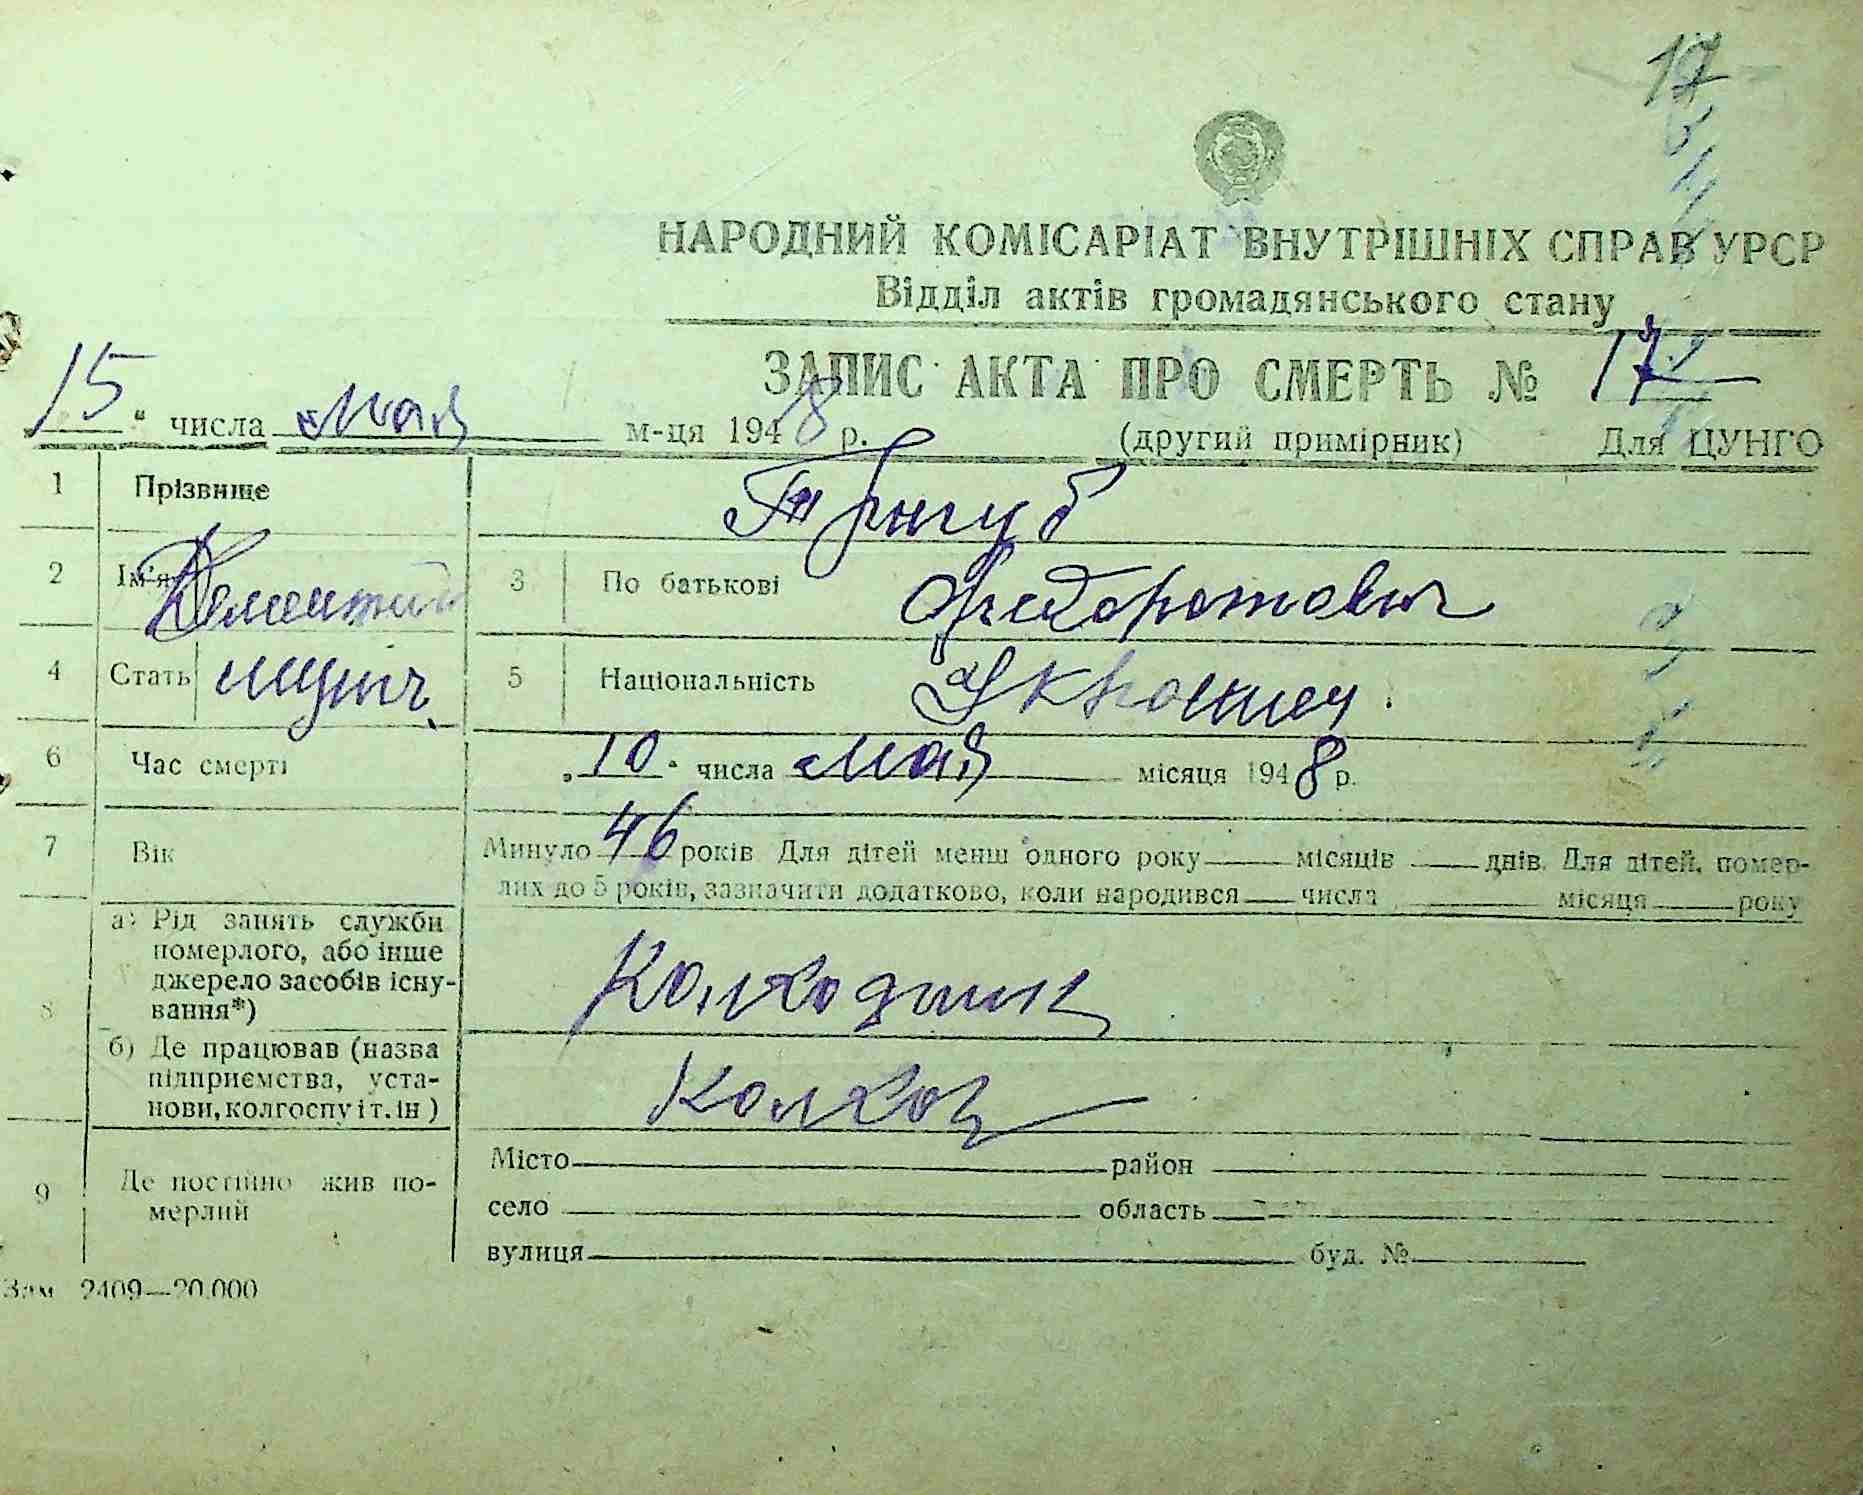 17
НАРОДНИЙ КОМІСАРІАТ ВНУТРІШНІХ СПРАВ УРСР
Відділ актів громадянського стану
ЗАПИС АКТА ПРО СМЕРТЬ № 17
15 " числа мая м-ця 1948 р. (другий примірник) Для ЦУНГО
1 Прізвище Трингуб
2 Ім'я Дементий 3 По батькові Федоротович
4 Стать мужч. 5 Національність Украинец.
6 Час смерті „10" числа мая місяця 1948 р.
7 Вік Минуло 46 років Для дітей менш одного року місяців днів. Для дітей, помер-
лих до 5 років, зазначити додатково, коли народився числа місяця року
8 а) Рід занять служби
померлого, або інше
джерело засобів існу-
вання*) Колхозник
б) Де працював (назва
підприємства, уста-
нови, колгоспу і т. ін) Колхоз
9 Де постійно жив по-
мерлий
Місто район
село область
вулиця буд. №
Зам 2409—20.000